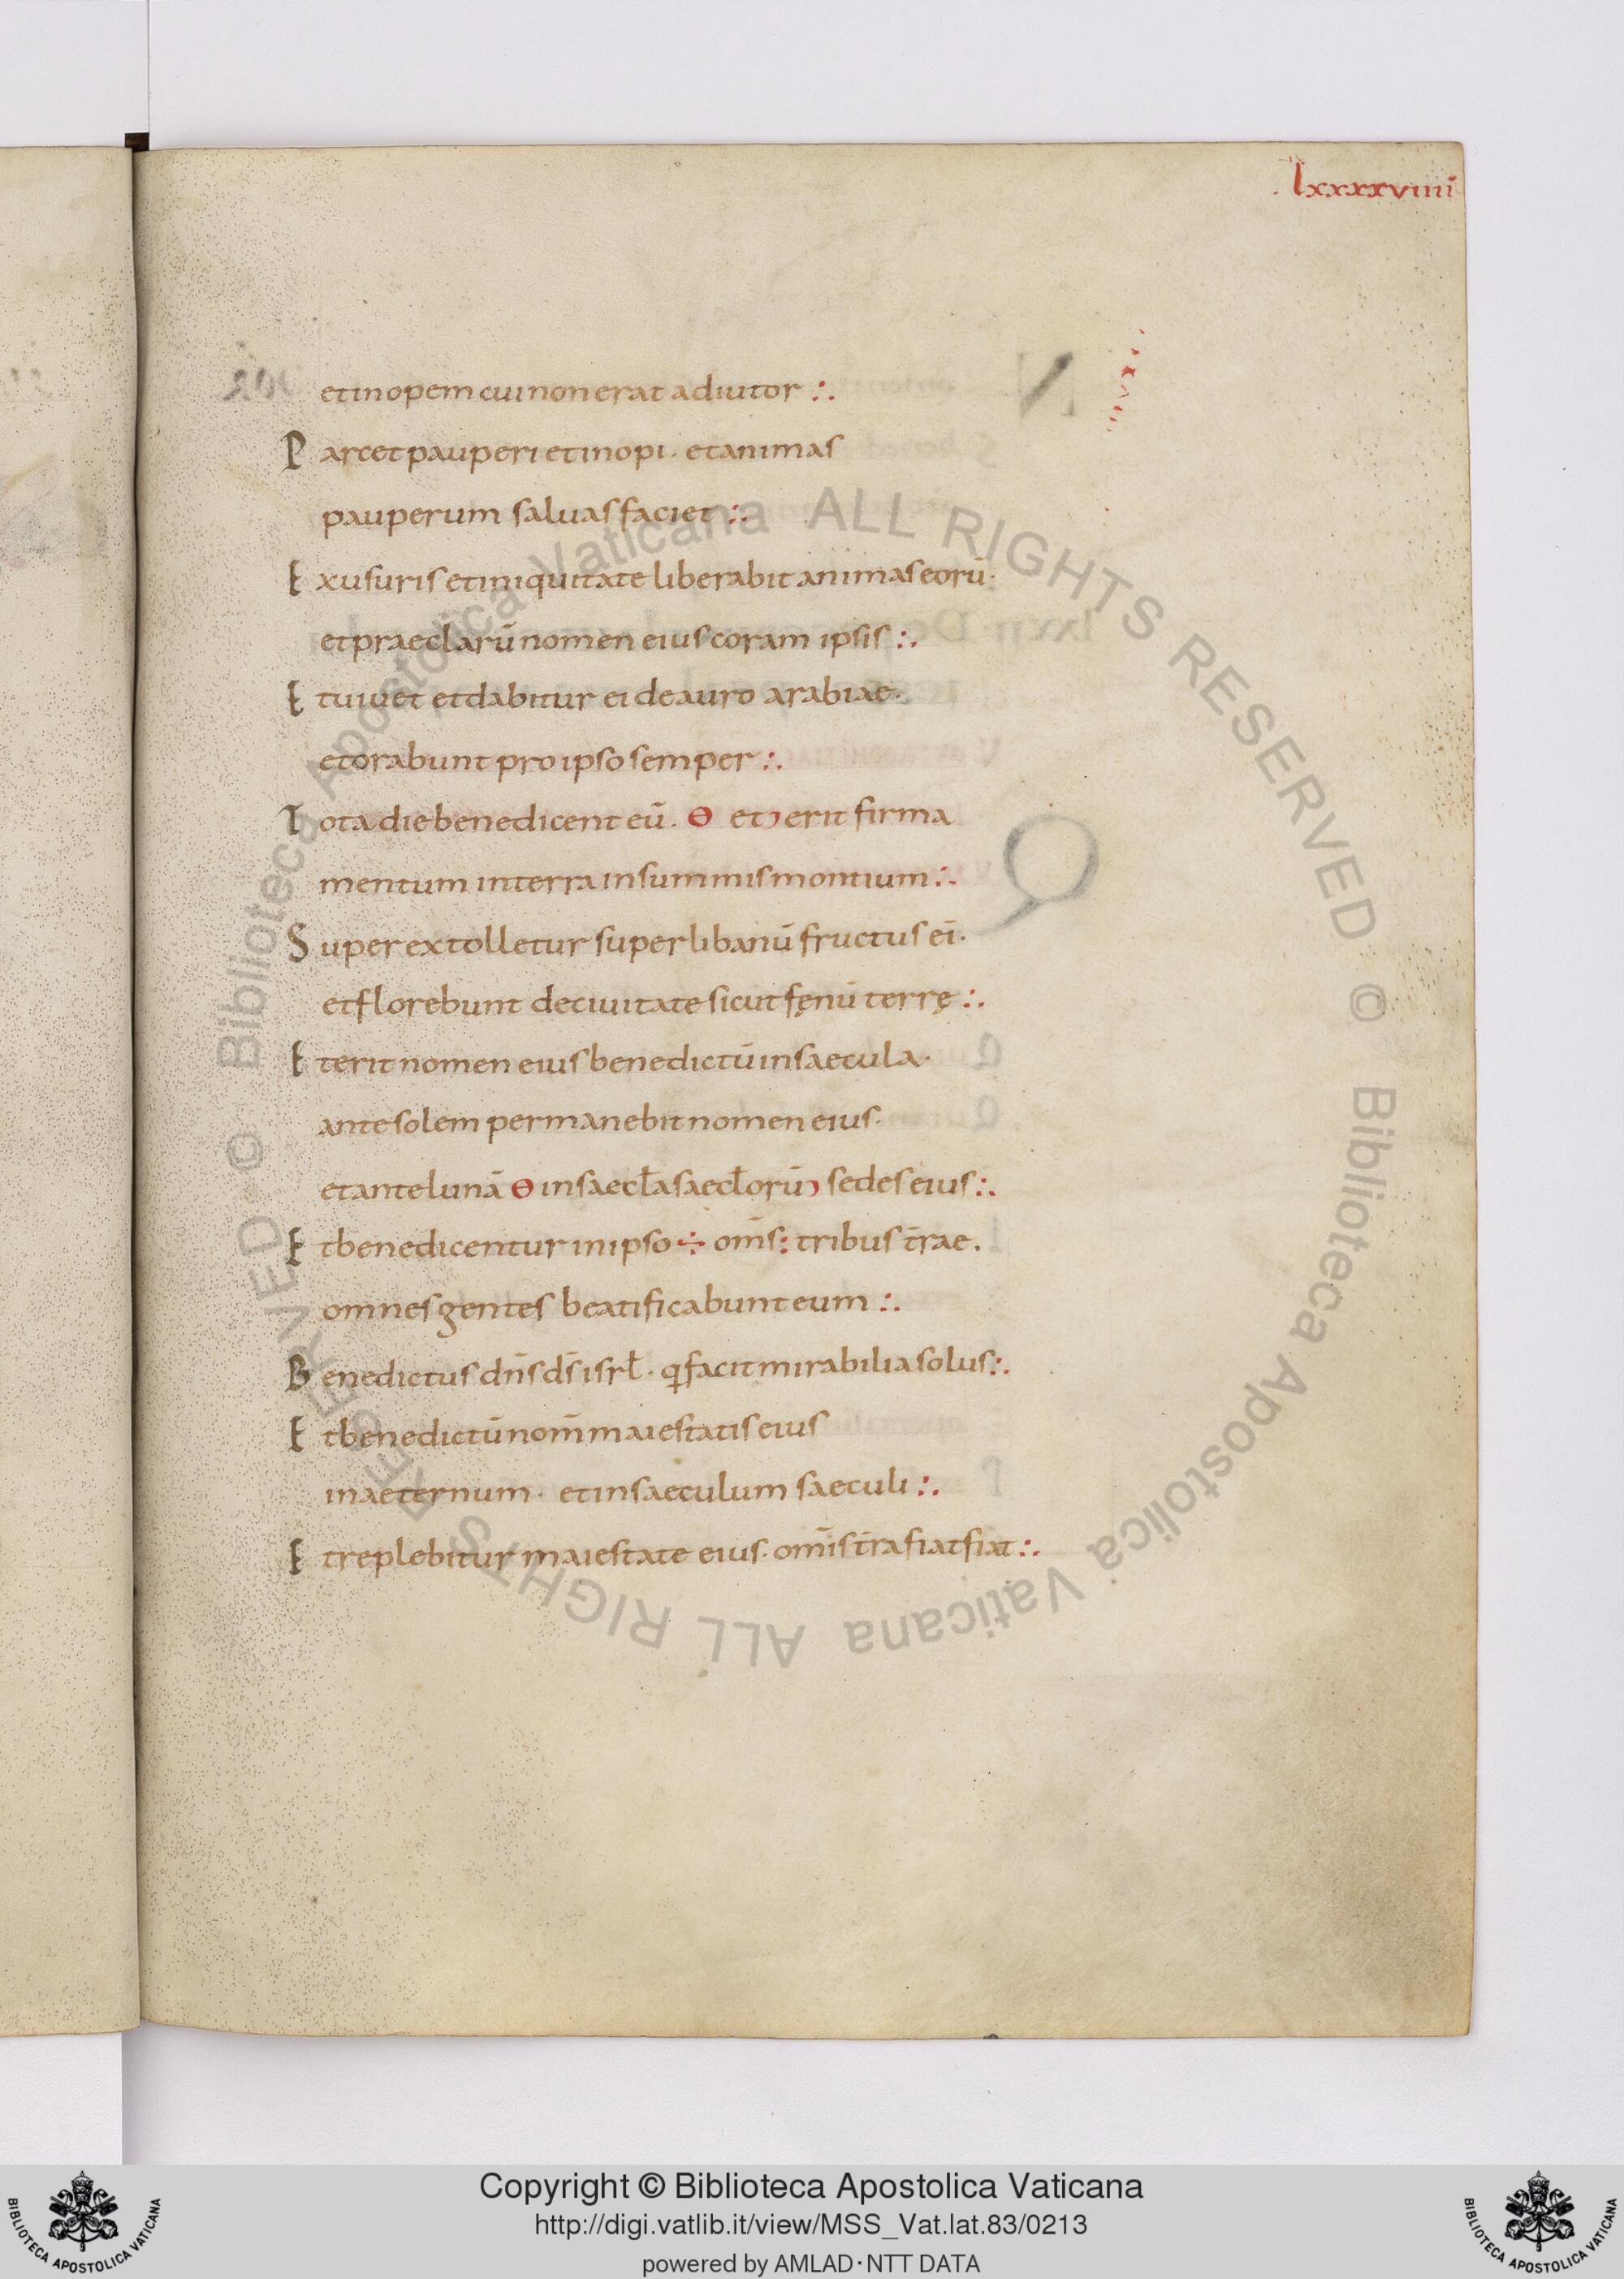 lxxxxviiii
et inopem cui non erat adiutor :.
Parcet pauperi et inopi · et animas
pauperum saluas faciet :.
Ex usuris et iniquitate liberabit animas eorū ·
et praeclarū nomen eius coram ipsis :.
Et uiuet et dabitur ei de auro arabiae ·
et orabunt pro ipso semper :.
Tota die benedicent eū . Θ et ⁊ erit firma
mentum in terra in summis montium :.
Super extolletur super libanū fructus ei̅ ·
et florebunt de ciuitate sicut fęnū terrę :.
Et erit nomen eius benedictū in saecula ·
ante solem permanebit nomen eius ·
et ante lunā Θ in saecl̄a saecl̄orū sedes eius :.
Et benedicentur in ipso ÷ om̄s : tribus t̄rae .
omnes gentes beatificabunt eum :.
Benedictus dn̄s ds̄ isrl̄ · q facit mirabilia solus :.
Et benedictū nom̄ maiestatis eius
in aeternum · et in saeculum saeculi :.
Et replebitur maiestate eius · om̄is t̄ra fiat fiat :.
© Biblioteca Apostolica Vaticana ALL RIGHTS RESERVED
© Biblioteca Apostolica Vaticana ALL RIGHTS RESERVED
Copyright © Biblioteca Apostolica Vaticana
http://digi.vatlib.it/view/MSS_Vat.lat.83/0213
powered by AMLAD · NTT DATA
BIBLIOTECA APOSTOLICA VATICANA
BIBLIOTECA APOSTOLICA VATICANA